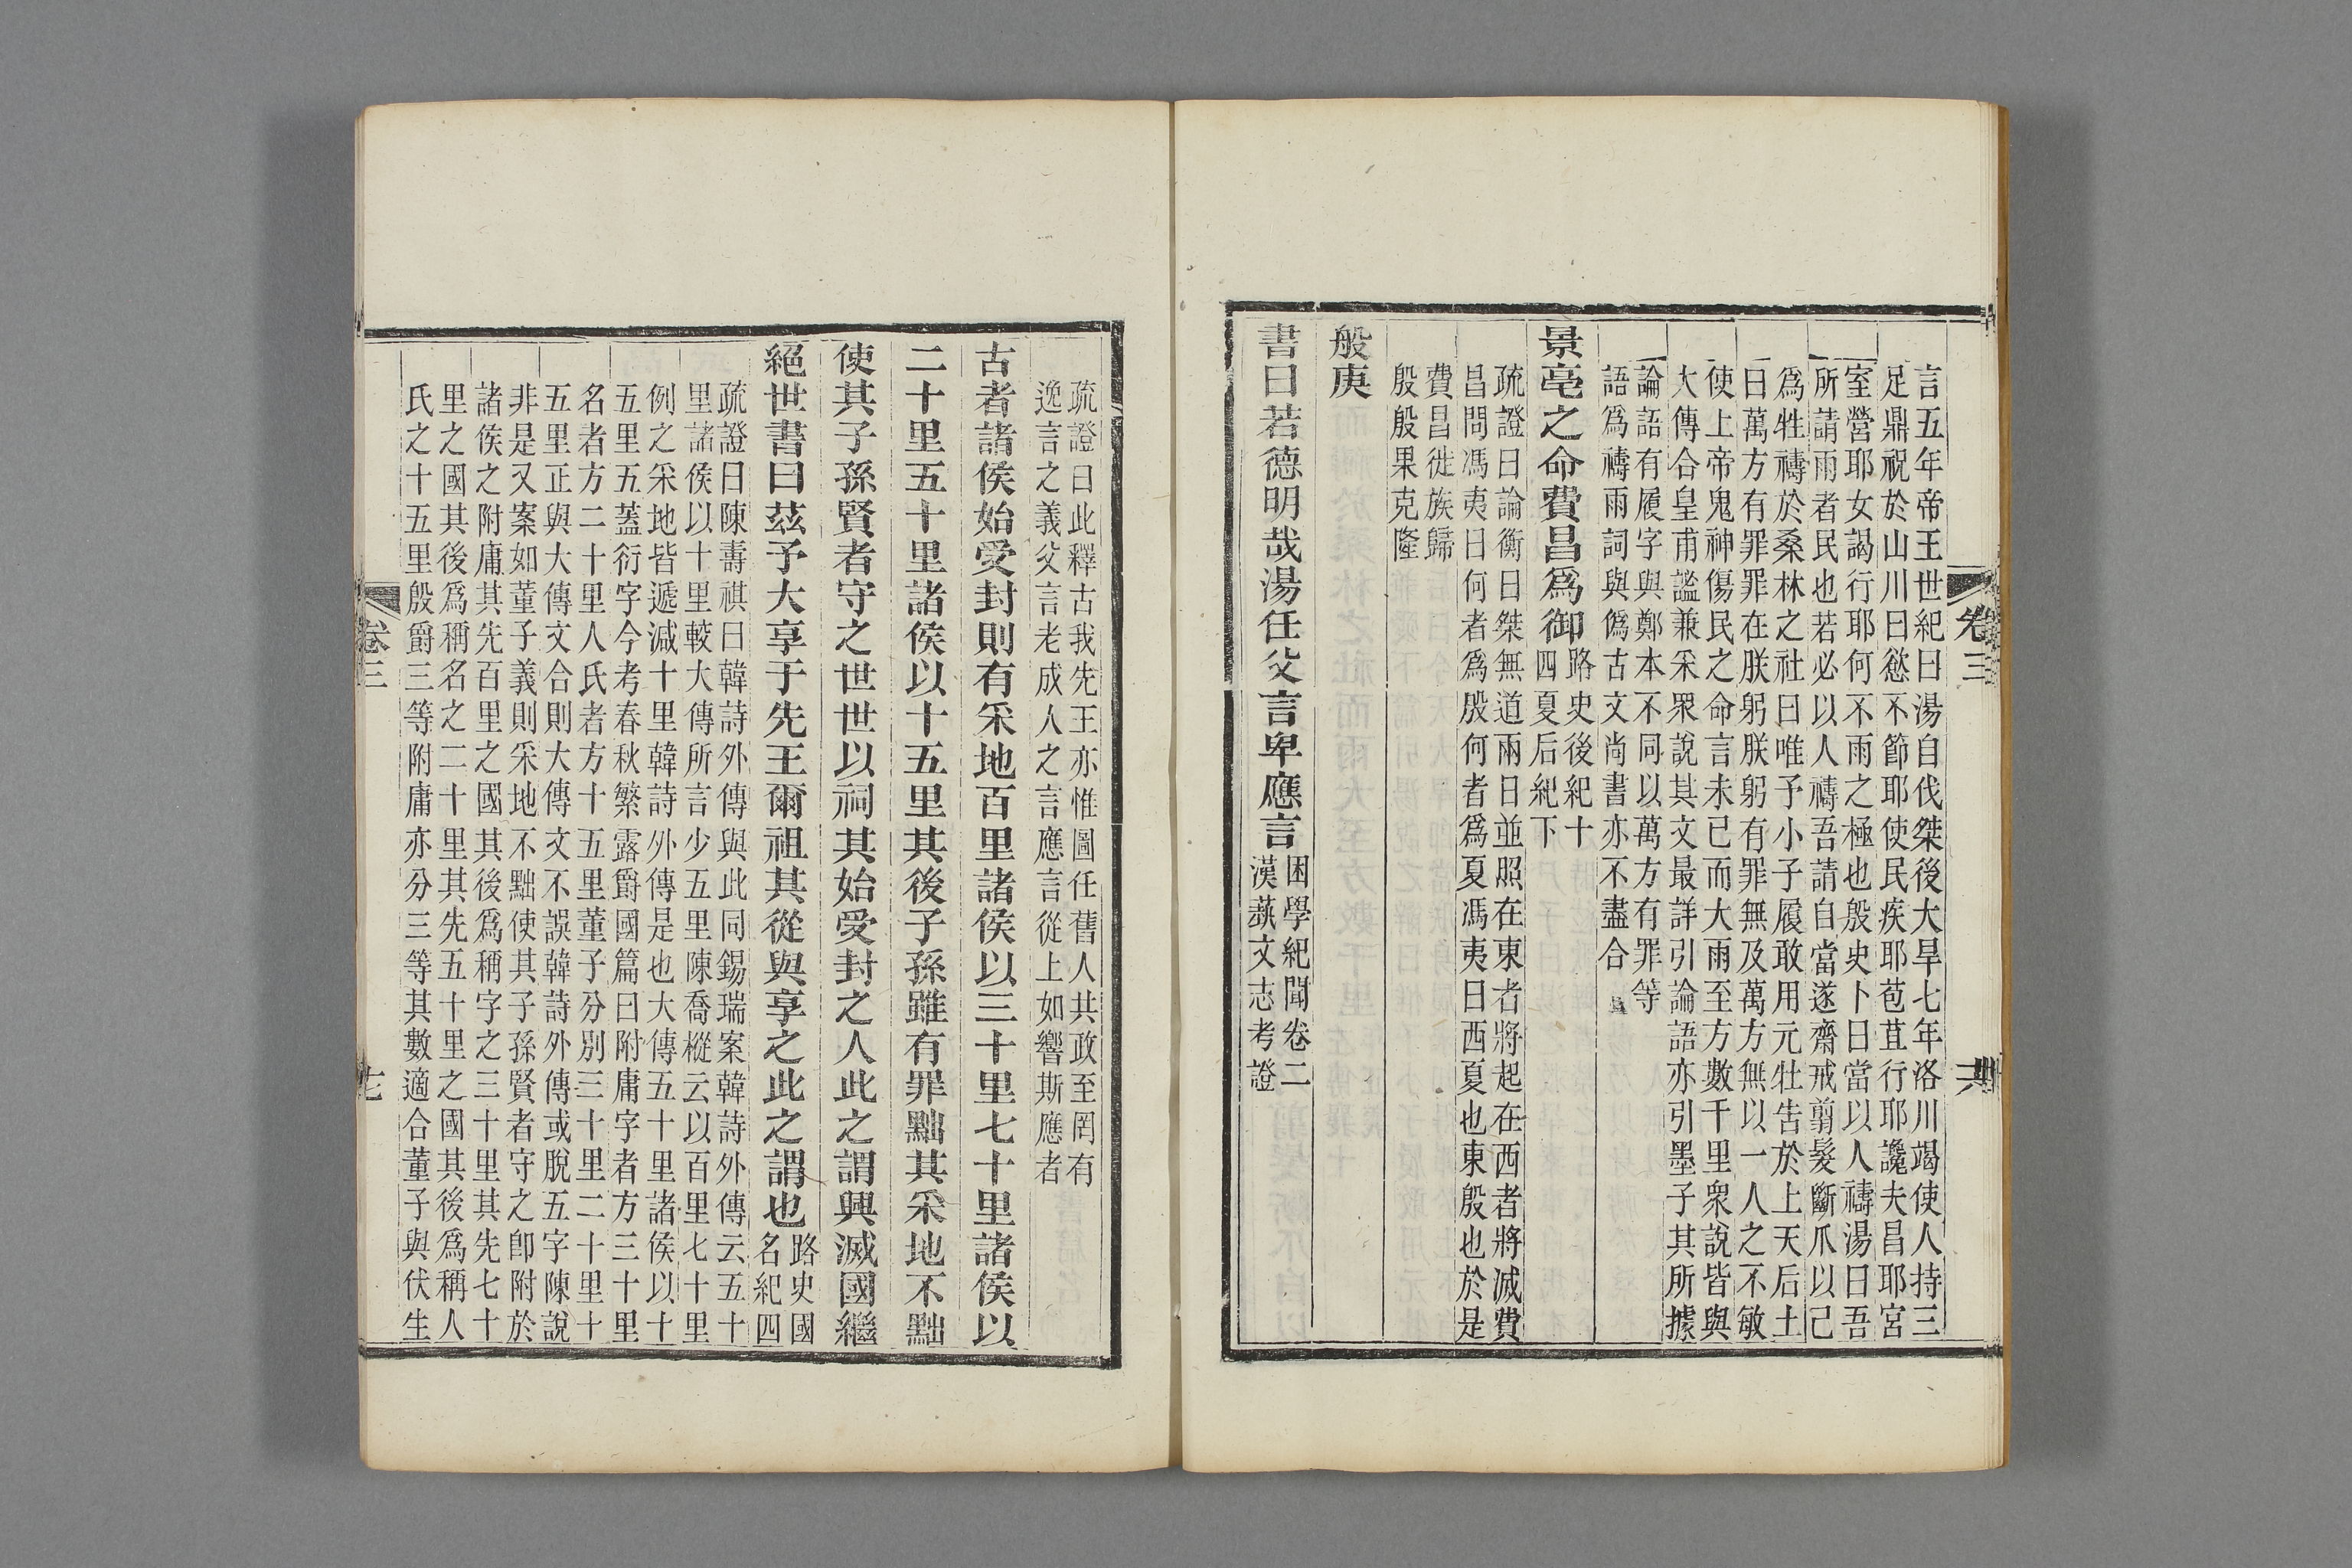 卷三
十六
言五年帝王世紀曰湯自伐桀後大旱七年洛川竭使人持三
足鼎祝於山川曰慾不節耶使民疾耶苞苴行耶讒夫昌耶宮
室營耶女謁行耶何不雨之極也殷史卜曰當以人禱湯曰吾
所請雨者民也若必以人禱吾請自當遂齋戒翦髮斷爪以己
爲牲禱於桑林之社曰唯予小子履敢用元牡告於上天后土
曰萬方有罪罪在朕躬朕躬有罪無及萬方無以一人之不敏
使上帝鬼神傷民之命言未已而大雨至方數千里衆說皆與
大傳合皇甫謐兼采衆說其文最詳引論語亦引墨子其所據
論語有履字與鄭本不同以萬方有罪等
語爲禱雨詞與僞古文尚書亦不盡合
景亳之命費昌爲御
路史後紀十
四夏后紀下
疏證曰論衡曰桀無道兩日並照在東者將起在西者將滅費
昌問馮夷曰何者爲殷何者爲夏馮夷曰西夏也東殷也於是
費昌徙族歸
殷殷果克隆
般庚
書曰若德明哉湯任父言卑應言
困學紀聞卷二
漢蓺文志考證
疏證曰此釋古我先王亦惟圖任舊人共政至罔有
逸言之義父言老成人之言應言從上如響斯應者
古者諸侯始受封則有采地百里諸侯以三十里七十里諸侯以
二十里五十里諸侯以十五里其後子孫雖有罪黜其采地不黜
使其子孫賢者守之世世以祠其始受封之人此之謂興滅國繼
絕世書曰茲予大享于先王爾祖其從與享之此之謂也
路史國
名紀四
疏證曰陳壽祺曰韓詩外傳與此同錫瑞案韓詩外傳云五十
里諸侯以十里較大傳所言少五里陳喬樅云以百里七十里
例之采地皆遞減十里韓詩外傳是也大傳五十里諸侯以十
五里五蓋衍字今考春秋繁露爵國篇曰附庸字者方三十里
名者方二十里人氏者方十五里董子分別三十里二十里十
五里正與大傳文合則大傳文不誤韓詩外傳或脫五字陳說
非是又案如董子義則采地不黜使其子孫賢者守之卽附於
諸侯之附庸其先百里之國其後爲稱字之三十里其先七十
里之國其後爲稱名之二十里其先五十里之國其後爲稱人
氏之十五里殷爵三等附庸亦分三等其數適合董子與伏生
卷三
十七